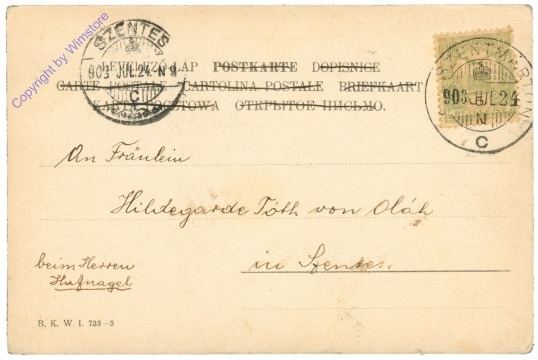 Copyright by Wimstore
SZENTES
903 JUL.24. N
C
903 JUL 24
N
C
LEVELEZŐ-LAP POSTKARTE DOPISNICE
CARTE POSTALE CARTOLINA POSTALE BRIEFKAART
KARTA POCZTOWA ОТКРЫТОЕ ПИСЬМО.
An Fräulein
Hildegarde Tóth von Oláh
in Szentes.
beim Herren
Hufnagel
B. K. W. I. 733–3